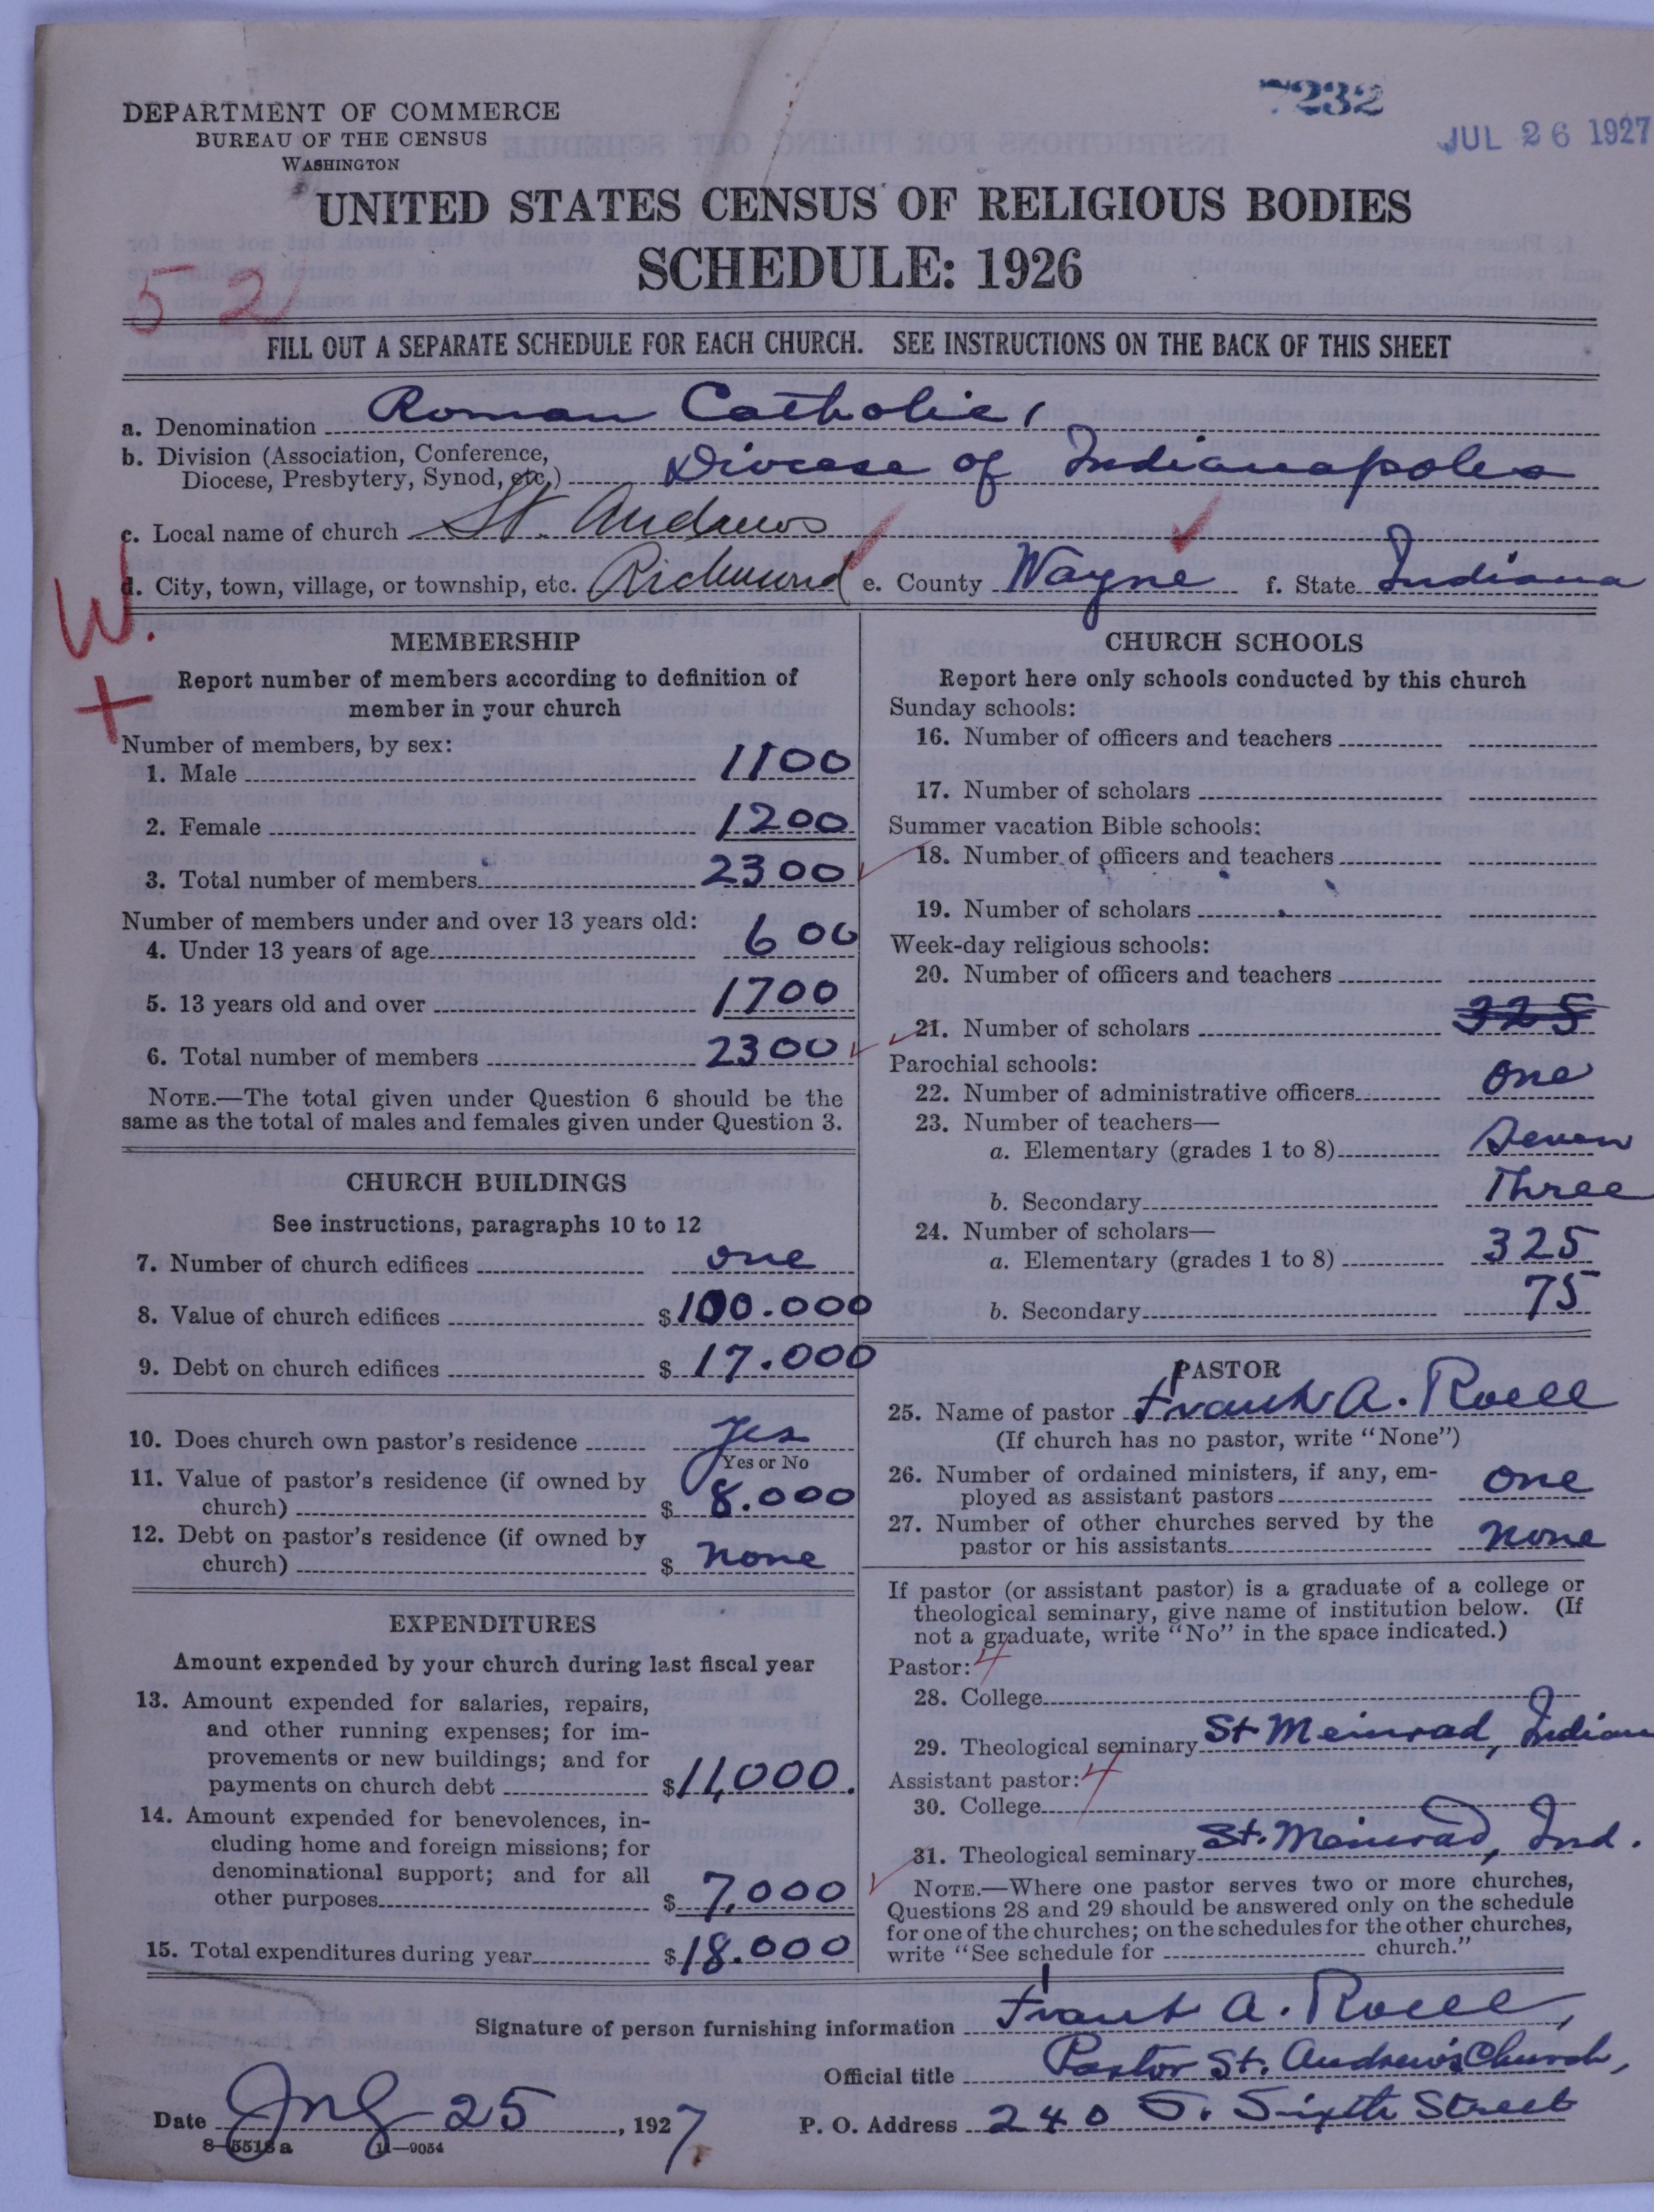 7232
JUL 26 1927
DEPARTMENT OF COMMERCE
BUREAU OF THE CENSUS
WASHINGTON
UNITED STATES CENSUS OF RELIGIOUS BODIES
SCHEDULE: 1926
52
FILL OUT A SEPARATE SCHEDULE FOR EACH CHURCH. SEE INSTRUCTIONS ON THE BACK OF THIS SHEET
a. Denomination Roman Catholic,
b. Division (Association, Conference,
Diocese, Presbytery, Synod, etc.) Diocese of Indianapolis
c. Local name of church St. Andrews
d. City, town, village, or township, etc. Richmond e. County Wayne f. State Indiana
W.
+
MEMBERSHIP
Report number of members according to definition of
member in your church
Number of members, by sex:
1. Male 1100
2. Female 1200
3. Total number of members 2300
Number of members under and over 13 years old:
4. Under 13 years of age 600
5. 13 years old and over 1700
6. Total number of members 2300
NOTE.—The total given under Question 6 should be the
same as the total of males and females given under Question 3.
CHURCH BUILDINGS
See instructions, paragraphs 10 to 12
7. Number of church edifices one
8. Value of church edifices $100.000
9. Debt on church edifices $17.000
10. Does church own pastor's residence Yes
Yes or No
11. Value of pastor's residence (if owned by
church) $8.000
12. Debt on pastor's residence (if owned by
church) $none
EXPENDITURES
Amount expended by your church during last fiscal year
13. Amount expended for salaries, repairs,
and other running expenses; for im-
provements or new buildings; and for
payments on church debt $11,000.
14. Amount expended for benevolences, in-
cluding home and foreign missions; for
denominational support; and for all
other purposes $7,000
15. Total expenditures during year $18.000
CHURCH SCHOOLS
Report here only schools conducted by this church
Sunday schools:
16. Number of officers and teachers
17. Number of scholars
Summer vacation Bible schools:
18. Number of officers and teachers
19. Number of scholars
Week-day religious schools:
20. Number of officers and teachers
21. Number of scholars 325
Parochial schools:
22. Number of administrative officers one
23. Number of teachers—
a. Elementary (grades 1 to 8) Seven
b. Secondary Three
24. Number of scholars—
a. Elementary (grades 1 to 8) 325
b. Secondary 75
PASTOR
25. Name of pastor Frank A. Roell
(If church has no pastor, write "None")
26. Number of ordained ministers, if any, em-
ployed as assistant pastors one
27. Number of other churches served by the
pastor or his assistants none
If pastor (or assistant pastor) is a graduate of a college or
theological seminary, give name of institution below. (If
not a graduate, write "No" in the space indicated.)
Pastor: 4
28. College
29. Theological seminary St Meinrad, Indian
Assistant pastor: 4
30. College
31. Theological seminary St. Meinrad, Ind.
NOTE.—Where one pastor serves two or more churches,
Questions 28 and 29 should be answered only on the schedule
for one of the churches; on the schedules for the other churches,
write "See schedule for church."
Signature of person furnishing information Frank A. Roell,
Official title Pastor St. Andrew's Church,
Date 25, 1927 P. O. Address 240 S. Sixth Street
8—5518 a 11—9054